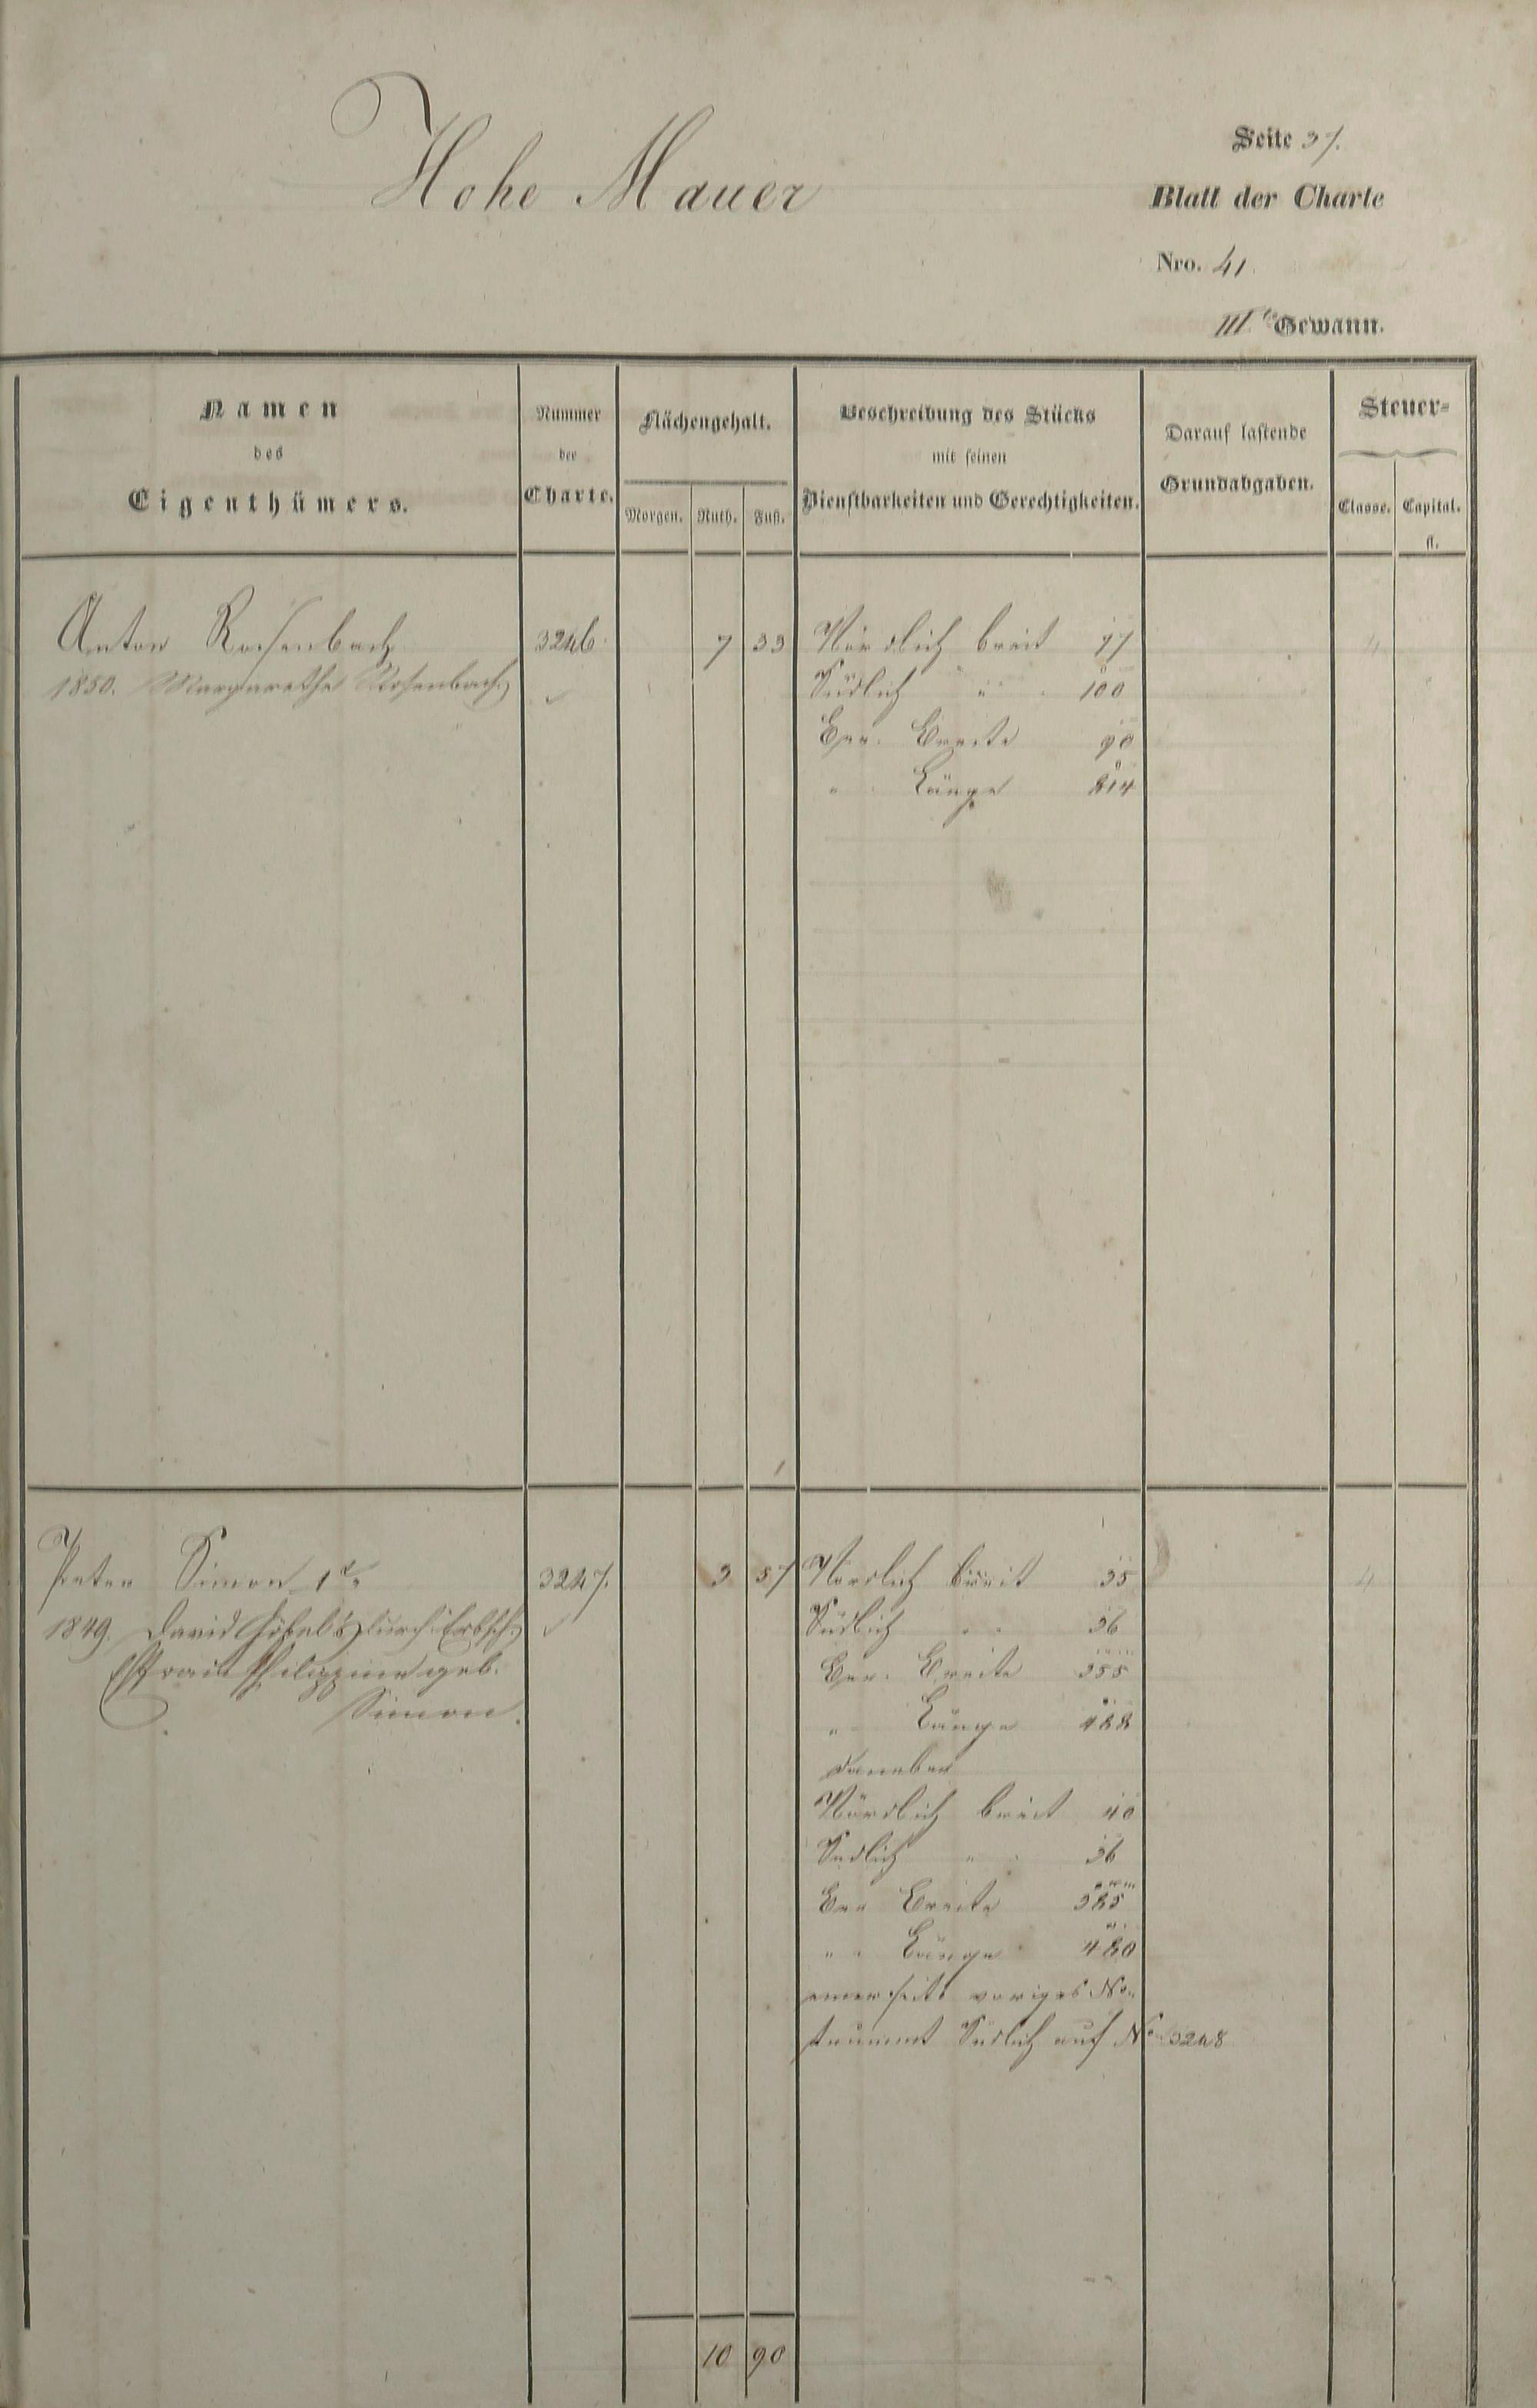 Hohe Mauer
Seite 37.
Blatt der Charte
Nro. 41.
III.te Gewann.
Namen
des
Eigenthümers.
Nummer
der
Charte.
Flächengehalt.
Morgen. Ruth. Fuß.
Beschreibung des Stücks
mit seinen
Dienstbarkeiten und Gerechtigkeiten.
Darauf lastende
Grundabgaben.
Steuer-
Classe. Capital.
fl.
Anton Rosenbach 3246. 7 33 Nördlich breit 4
1850. Margarethe Rosenbach Südlich " 100
Ber. Breite 90
" Länge 814
Peter Simon 1r 3247. 3 57 Nördlich breit 35 4
1849. David Göbel's durch Erbsch. Südlich " 36
Ehfrau Philippine geb. Ber. Breite 355
Simon. " Länge 488
daneben
Nördlich breit 40
Südlich " 36
Ber Breite 385
" Länge 480
einerseits voriges No.
Südlich auf No 3248
10 90